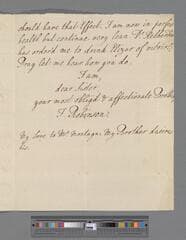 should have that Effect. I am now in perfect
health but continue very lean Dr.
has order'd me to drink
Pray let me hear how you do
I am,
dear Sister
your most oblig'd & affectionate Brother
T. Robinson.
My love to Mr Montagu. My Brother desires
his.